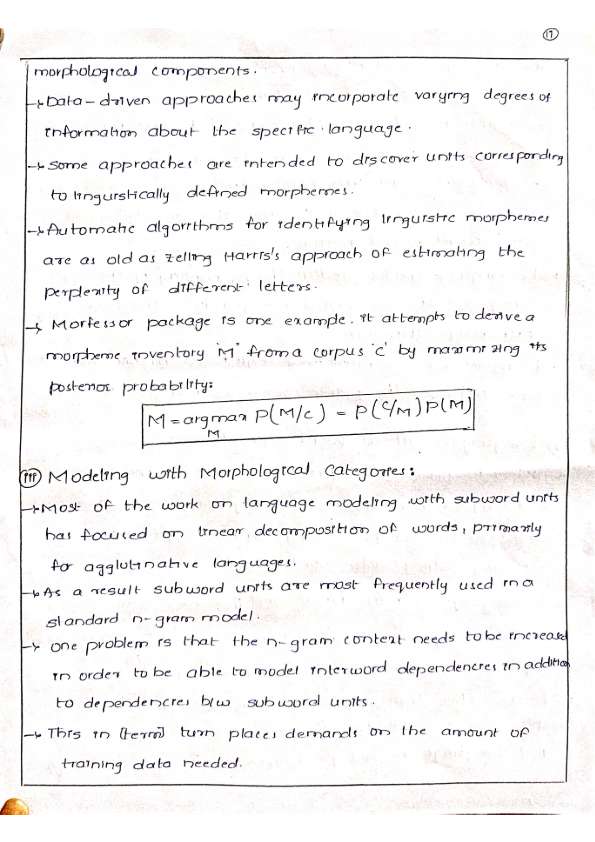 17
morphological components.
→ Data-driven approaches may incorporate varying degrees of
information about the specific language.
→ Some approaches are intended to discover units corresponding
to linguistically defined morphemes.
→ Automatic algorithms for identifying linguistic morphemes
are as old as zelling Harris's approach of estimating the
perplexity of different letters.
→ Morfessor package is one example. it attempts to derive a
morpheme inventory 'M' from a corpus 'c' by maximizing its
posterior probability:
M = argmax P(M/c) = P(C/M) P(M)
M
(iii) Modeling with Morphological Categories:
→ Most of the work on language modeling with subword units
has focused on linear decomposition of words, primarily
for agglutinative languages.
→ As a result subword units are most frequently used in a
standard n-gram model.
→ one problem is that the n-gram context needs to be increased
in order to be able to model interword dependencies in addition
to dependencies b/w subword units.
→ This in [term] turn places demands on the amount of
training data needed.